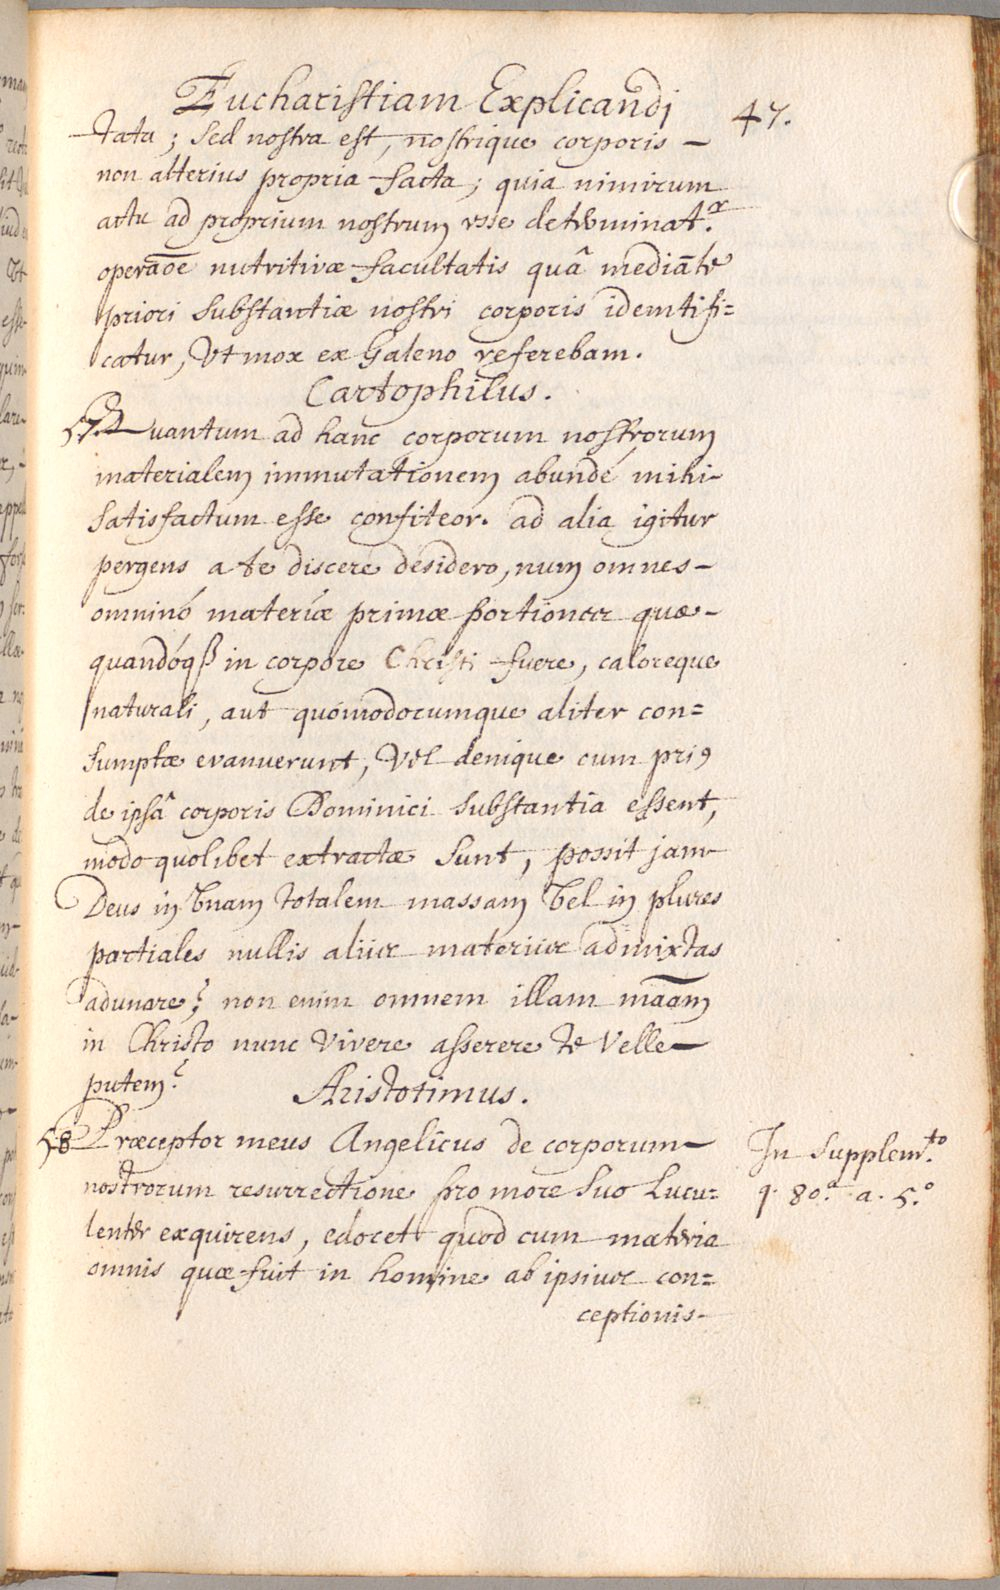 Eucharistiam Explicandi
47.
tata; sed nostra est, nostrique corporis –
non alterius propria facta; quia nimirum
actu ad proprium nostrum esse determinat.r
operãoẽ nutritivæ facultatis quâ mediãte
priori substantiæ nostri corporis idemtifi=
catur, Vt mox ex Galeno referebam.
Cartophilus.
57. Quantum ad hanc corporum nostrorum
materialem immutationem abundé mihi–
satisfactum esse confiteor. ad alia igitur
pergens a te discere desidero, num omnes–
omninó materiæ primæ portiones quæ–
quandóqꝫ in corpore Christi fuere, caloreque
naturali, aut quómodocumque aliter con=
sumptæ evanuerunt, Vel denique cum pri9
de ipsâ corporis Dominici substantia essent,
modo quolibet extractæ sunt, possit jam
Deus in Vnam totalem massam Vel in plures
partiales nullis aliis materiis admixtas
adunare? non enim omnem illam mãam
in Christo nunc vivere asserere te Velle–
putem?
Aristotimus.
58 Præceptor meus Angelicus de corporum–
nostrorum resurrectione pro more suo Lucu=
lenter exquirens, edocet quod cum materia
omnis quæ fuit in homine ab ipsius con=
ceptionis–
In Supplem.to
q. 80.a a. 5.o